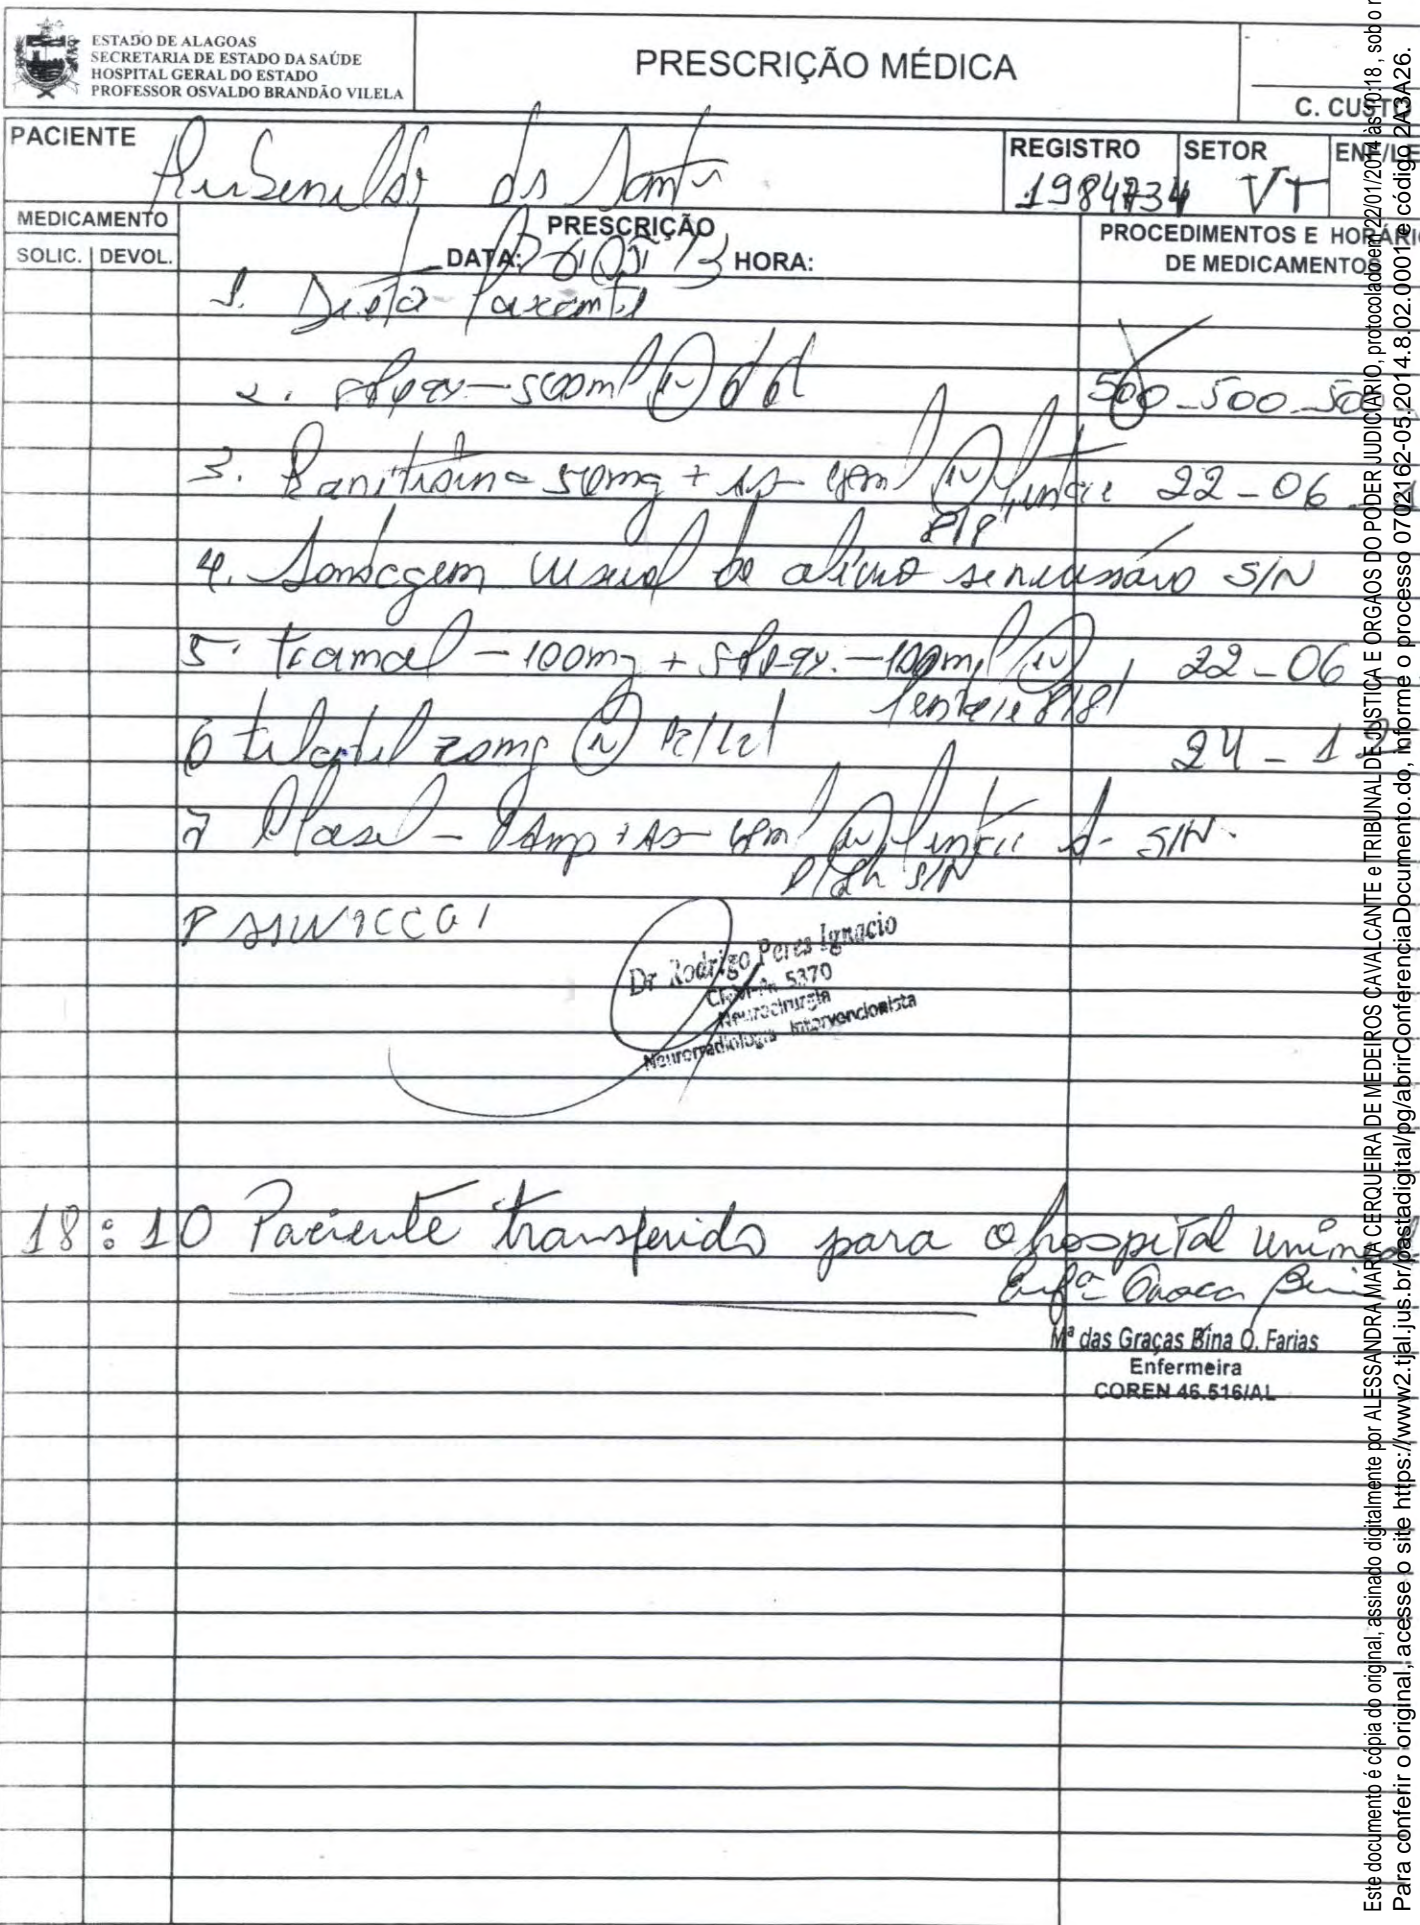 ESTADO DE ALAGOAS
SECRETARIA DE ESTADO DA SAÚDE
HOSPITAL GERAL DO ESTADO
PROFESSOR OSVALDO BRANDÃO VILELA
PRESCRIÇÃO MÉDICA
C. CUSTO
PACIENTE
dos Santos
REGISTRO
1984734
SETOR
VT
MEDICAMENTO
SOLIC. DEVOL.
PRESCRIÇÃO
DATA: HORA:
PROCEDIMENTOS E HORÁRIO
DE MEDICAMENTO
1. Dieta laxante
2. 500ml IV 500-500-50
3. Ranitidina 50mg + AD IV lento 22-06
8/8
4. Sondagem vesical de alívio se necessário S/N
5. Tramal - 100mg + - 100ml IV 22-06
lento 8/8
6 tilatil 20mg IV 12/12 24-12
7 Plasil - Amp + AD IV lento S/N
S/N
Dr Rodrigo Peres Ignacio
5370
Neurocirurgia
Neurorradiologia Intervencionista
18:10 Paciente transferido para o hospital unimed
Enfª
Mª das Graças Bina O. Farias
Enfermeira
COREN 46.516/AL
Este documento é cópia do original, assinado digitalmente por ALESSANDRA MARIA CERQUEIRA DE MEDEIROS CAVALCANTE e TRIBUNAL DE JUSTICA E ORGAOS DO PODER JUDICIARIO, protocolado em 22/01/2014 às 10:18 , sob o
Para conferir o original, acesse o site https://www2.tjal.jus.br/pastadigital/pg/abrirConferenciaDocumento.do, informe o processo 0702162-05.2014.8.02.0001 e código 2A3A26.